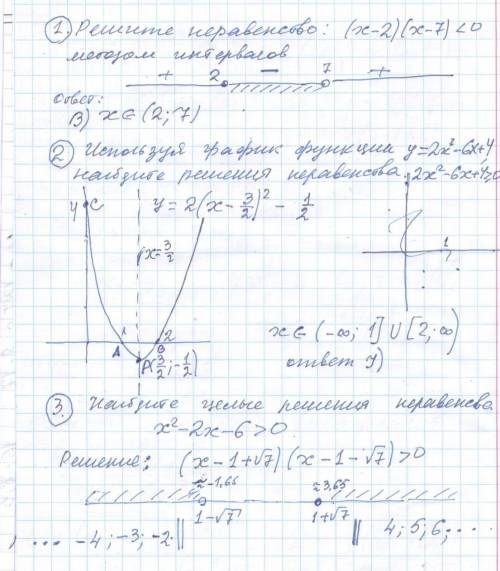 1. Решите неравенство: (x-2)(x-7)<0
методом интервалов
+ 2 − 7 +
ответ:
В) x∈(2; 7)
2. Используя график функции y=2x²-6x+4
найдите решения неравенства 2x²-6x+4≥0
y C y = 2(x - 3/2)² - 1/2
x=3/2
1
1 2
A B
x∈(-∞; 1] ∪ [2; ∞)
P(3/2; -1/2)
ответ
3. Найдите целые решения неравенства
x²-2x-6>0
Решение: (x-1+√7)(x-1-√7)>0
≈-1,65 ≈3,65
1-√7 1+√7
... -4; -3; -2 || || 4; 5; 6; ...